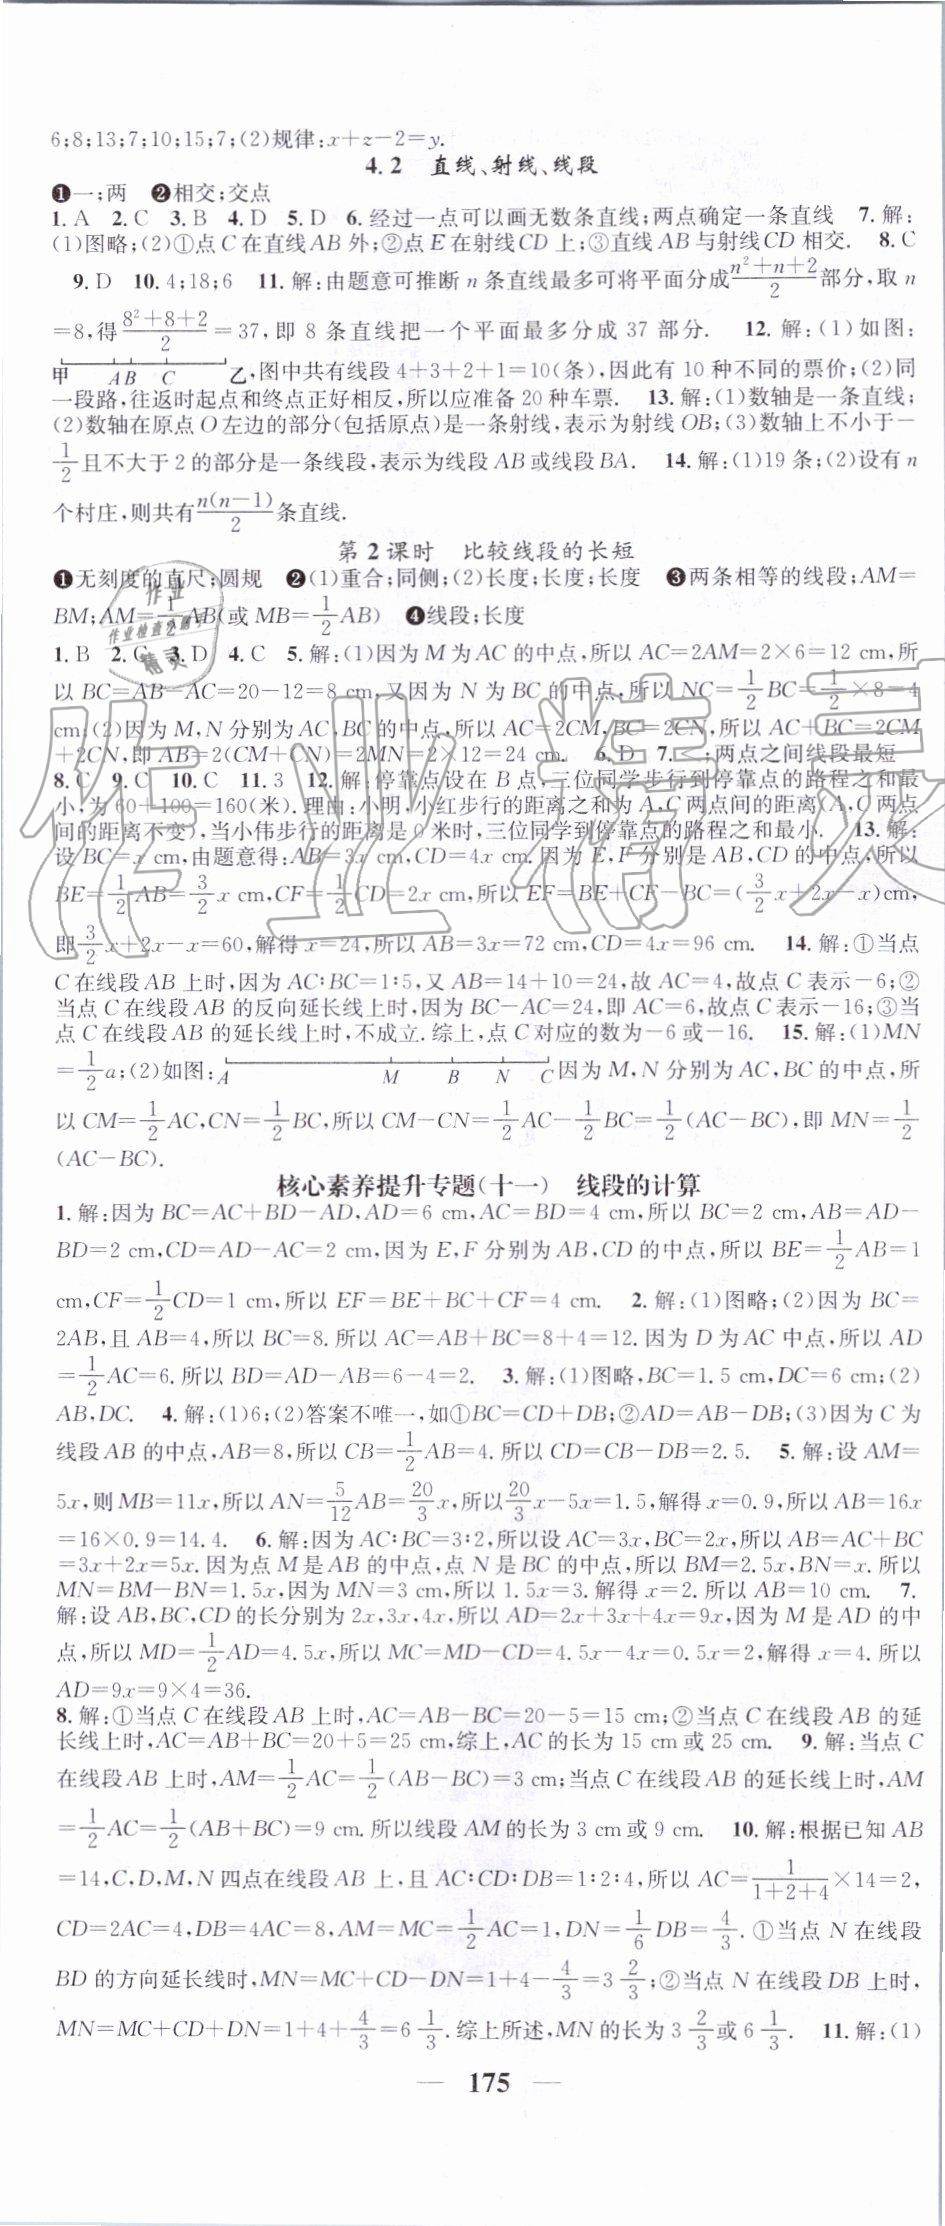 6;8;13;7;10;15;7;(2)规律:x+z-2=y.
4.2 直线、射线、线段
❶一;两 ❷相交;交点
1. A 2. C 3. B 4. D 5. D 6. 经过一点可以画无数条直线;两点确定一条直线 7. 解:
(1)图略;(2)①点C在直线AB外;②点E在射线CD上;③直线AB与射线CD相交. 8. C
9. D 10. 4;18;6 11. 解:由题意可推断n条直线最多可将平面分成\frac{n²+n+2}{2}部分,取n
=8,得\frac{8²+8+2}{2}=37,即8条直线把一个平面最多分成37部分. 12. 解:(1)如图:
甲 A B C 乙,图中共有线段4+3+2+1=10(条),因此有10种不同的票价;(2)同
一段路,往返时起点和终点正好相反,所以应准备20种车票. 13. 解:(1)数轴是一条直线;
(2)数轴在原点O左边的部分(包括原点)是一条射线,表示为射线OB;(3)数轴上不小于-
\frac{1}{2}且不大于2的部分是一条线段,表示为线段AB或线段BA. 14. 解:(1)19条;(2)设有n
个村庄,则共有\frac{n(n-1)}{2}条直线.
第2课时 比较线段的长短
❶无刻度的直尺;圆规 ❷(1)重合;同侧;(2)长度;长度;长度 ❸两条相等的线段;AM=
BM;AM=\frac{1}{2}AB(或MB=\frac{1}{2}AB) ❹线段;长度
1. B 2. C 3. D 4. C 5. 解:(1)因为M为AC的中点,所以AC=2AM=2×6=12 cm,所
以BC=AB-AC=20-12=8 cm,又因为N为BC的中点,所以NC=\frac{1}{2}BC=\frac{1}{2}×8=4
cm;(2)因为M,N分别为AC,BC的中点,所以AC=2CM,BC=2CN,所以AC+BC=2CM
+2CN,即AB=2(CM+CN)=2MN=2×12=24 cm. 6. D 7. 二;两点之间线段最短
8. C 9. C 10. C 11. 3 12. 解:停靠点设在B点,三位同学步行到停靠点的路程之和最
小,为60+100=160(米).理由:小明,小红步行的距离之和为A,C两点间的距离(A,C两点
间的距离不变),当小伟步行的距离是0米时,三位同学到停靠点的路程之和最小. 13. 解:
设BC=x cm,由题意得:AB=3x cm,CD=4x cm.因为E,F分别是AB,CD的中点,所以
BE=\frac{1}{2}AB=\frac{3}{2}x cm,CF=\frac{1}{2}CD=2x cm,所以EF=BE+CF-BC=(\frac{3}{2}x+2x-x)cm,
即\frac{3}{2}x+2x-x=60,解得x=24,所以AB=3x=72 cm,CD=4x=96 cm. 14. 解:①当点
C在线段AB上时,因为AC:BC=1:5,又AB=14+10=24,故AC=4,故点C表示-6;②
当点C在线段AB的反向延长线上时,因为BC-AC=24,即AC=6,故点C表示-16;③当
点C在线段AB的延长线上时,不成立.综上,点C对应的数为-6或-16. 15. 解:(1)MN
=\frac{1}{2}a;(2)如图: A M B N C 因为M,N分别为AC,BC的中点,所
以CM=\frac{1}{2}AC,CN=\frac{1}{2}BC,所以CM-CN=\frac{1}{2}AC-\frac{1}{2}BC=\frac{1}{2}(AC-BC),即MN=\frac{1}{2}
(AC-BC).
核心素养提升专题(十一) 线段的计算
1. 解:因为BC=AC+BD-AD,AD=6 cm,AC=BD=4 cm,所以BC=2 cm,AB=AD-
BD=2 cm,CD=AD-AC=2 cm,因为E,F分别为AB,CD的中点,所以BE=\frac{1}{2}AB=1
cm,CF=\frac{1}{2}CD=1 cm,所以EF=BE+BC+CF=4 cm. 2. 解:(1)图略;(2)因为BC=
2AB,且AB=4,所以BC=8.所以AC=AB+BC=8+4=12.因为D为AC中点,所以AD
=\frac{1}{2}AC=6.所以BD=AD-AB=6-4=2. 3. 解:(1)图略,BC=1.5 cm,DC=6 cm;(2)
AB,DC. 4. 解:(1)6;(2)答案不唯一,如①BC=CD+DB;②AD=AB-DB;(3)因为C为
线段AB的中点,AB=8,所以CB=\frac{1}{2}AB=4.所以CD=CB-DB=2.5. 5. 解:设AM=
5x,则MB=11x,所以AN=\frac{5}{12}AB=\frac{20}{3}x,所以\frac{20}{3}x-5x=1.5,解得x=0.9,所以AB=16x
=16×0.9=14.4. 6. 解:因为AC:BC=3:2,所以设AC=3x,BC=2x,所以AB=AC+BC
=3x+2x=5x.因为点M是AB的中点,点N是BC的中点,所以BM=2.5x,BN=x.所以
MN=BM-BN=1.5x,因为MN=3 cm,所以1.5x=3.解得x=2.所以AB=10 cm. 7.
解:设AB,BC,CD的长分别为2x,3x,4x,所以AD=2x+3x+4x=9x,因为M是AD的中
点,所以MD=\frac{1}{2}AD=4.5x,所以MC=MD-CD=4.5x-4x=0.5x=2,解得x=4.所以
AD=9x=9×4=36.
8. 解:①当点C在线段AB上时,AC=AB-BC=20-5=15 cm;②当点C在线段AB的延
长线上时,AC=AB+BC=20+5=25 cm,综上,AC的长为15 cm或25 cm. 9. 解:当点C
在线段AB上时,AM=\frac{1}{2}AC=\frac{1}{2}(AB-BC)=3 cm;当点C在线段AB的延长线上时,AM
=\frac{1}{2}AC=\frac{1}{2}(AB+BC)=9 cm.所以线段AM的长为3 cm或9 cm. 10. 解:根据已知AB
=14,C,D,M,N四点在线段AB上,且AC:CD:DB=1:2:4,所以AC=\frac{1}{1+2+4}×14=2,
CD=2AC=4,DB=4AC=8,AM=MC=\frac{1}{2}AC=1,DN=\frac{1}{6}DB=\frac{4}{3}.①当点N在线段
BD的方向延长线时,MN=MC+CD-DN=1+4-\frac{4}{3}=3\frac{2}{3};②当点N在线段DB上时,
MN=MC+CD+DN=1+4+\frac{4}{3}=6\frac{1}{3}.综上所述,MN的长为3\frac{2}{3}或6\frac{1}{3}. 11. 解:(1)
— 175 —
作业
作业检查小助手
精灵
作业精灵